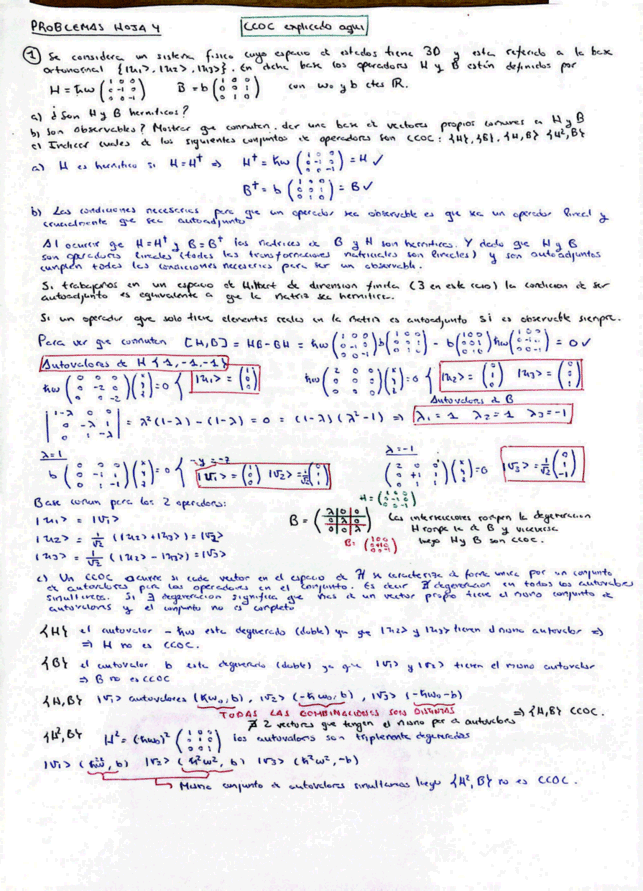 PROBLEMAS HOJA 4
CCOC explicado aquí
① Se considera un sistema físico cuyo espacio de estados tiene 3D y esta referido a la base
ortonormal {|u₁>, |u₂>, |u₃>}. En dicha base los operadores H y B están definidos por
H = ħω (1 0 0 / 0 -1 0 / 0 0 -1)   B = b (1 0 0 / 0 0 1 / 0 1 0)   con ω₀ y b ctes ℝ.
a) ¿Son H y B hermíticos?
b) Son Observables? Mostrar que conmutan. dar una base de vectores propios comunes a H y B
c) Indicar cuales de los siguientes conjuntos de operadores son CCOC: {H}, {B}, {H,B} {H²,B}
a) H es hermítico si H=H† ⇒ H† = ħω (1 0 0 / 0 -1 0 / 0 0 -1) = H ✓
B† = b (1 0 0 / 0 0 1 / 0 1 0) = B ✓
b) Las condiciones necesarias para que un operador sea observable es que sea un operador lineal y
crucialmente que sea autoadjunto
Al ocurrir que H=H† y B=B† las matrices de B y H son hermíticas. Y dado que H y B
son operadores lineales (todas las transformaciones matriciales son lineales) y son autoadjuntos
cumplen todas las condiciones necesarias para ser un observable.
Si trabajamos en un espacio de Hilbert de dimension finita (3 en este caso) la condicion de ser
autoadjunto es equivalente a que la matriz sea hermítica.
Si un operador que solo tiene elementos reales en la matriz es autoadjunto si es observable siempre.
Para ver que conmutan [H,B] = HB-BH = ħω (1 0 0 / 0 -1 0 / 0 0 -1) b (1 0 0 / 0 0 1 / 0 1 0) - b (1 0 0 / 0 0 1 / 0 1 0) ħω (1 0 0 / 0 -1 0 / 0 0 -1) = 0 ✓
Autovalores de H {1, -1, -1}
ħω (0 0 0 / 0 -2 0 / 0 0 -2)(x / y / z) = 0 { |u₁> = (1 / 0 / 0)   ħω (2 0 0 / 0 0 0 / 0 0 0)(x / y / z) = 0 { |u₂> = (0 / 1 / 0) |u₃> = (0 / 0 / 1)
Autovalores de B
|1-λ 0 0 / 0 -λ 1 / 0 1 -λ| = λ²(1-λ) - (1-λ) = 0 = (1-λ)(λ²-1) ⇒ λ₁ = 1 λ₂ = 1 λ₃ = -1
λ=1   λ=-1
b (0 0 0 / 0 -1 1 / 0 1 -1)(x / y / z) = 0 { -y = -z |v₁> = (1 / 0 / 0) |v₂> = 1/√2 (0 / 1 / 1)   (2 0 0 / 0 +1 1 / 0 1 1)(x / y / z) = 0 |v₃> = 1/√2 (0 / 1 / -1)
Base comun para los 2 operadores:
|u₁> = |v₁>
|u₂> = 1/√2 (|u₂> + |u₃>) = |v₂>
|u₃> = 1/√2 (|u₂> - |u₃>) = |v₃>
H = (1 0 0 / 0 -1 0 / 0 0 -1)
B = (λ 0 0 / 0 λ 0 / 0 0 λ)
Las intersecciones rompen la degeneracion
H rompe la de B y viceversa
luego H y B son CCOC.
c) Un CCOC ocurre si cada vector en el espacio de H se caracteriza de forma unica por un conjunto
de autovalores para los operadores en el conjunto. Es decir ∄ degeneracion en todos los autovalores
simultaneos. Si ∃ degeneracion significa que mas de un vector propio tiene el mismo conjunto de
autovalores y el conjunto no es completo
{H} el autovalor -ħω esta degenerado (doble) ya que |u₂> y |u₃> tienen el mismo autovalor ⇒
⇒ H no es CCOC.
{B} el autovalor b esta degenerado (doble) ya que |v₁> y |v₂> tienen el mismo autovalor
⇒ B no es CCOC
{H,B} |v₁> autovalores (ħω₀, b), |v₂> (-ħω₀, b), |v₃> (-ħω₀ -b)
TODAS LAS COMBINACIONES SON DISTINTAS ⇒ {H,B} CCOC.
∄ 2 vectores que tengan el mismo par de autovalores
{H²,B} H² = (ħω₀)² (1 0 0 / 0 1 0 / 0 0 1) los autovalores son triplemente degenerados
|v₁> (ħ²ω², b) |v₂> (ħ²ω², b) |v₃> (ħ²ω², -b)
Mismo conjunto de autovalores simultaneos luego {H²,B} no es CCOC.